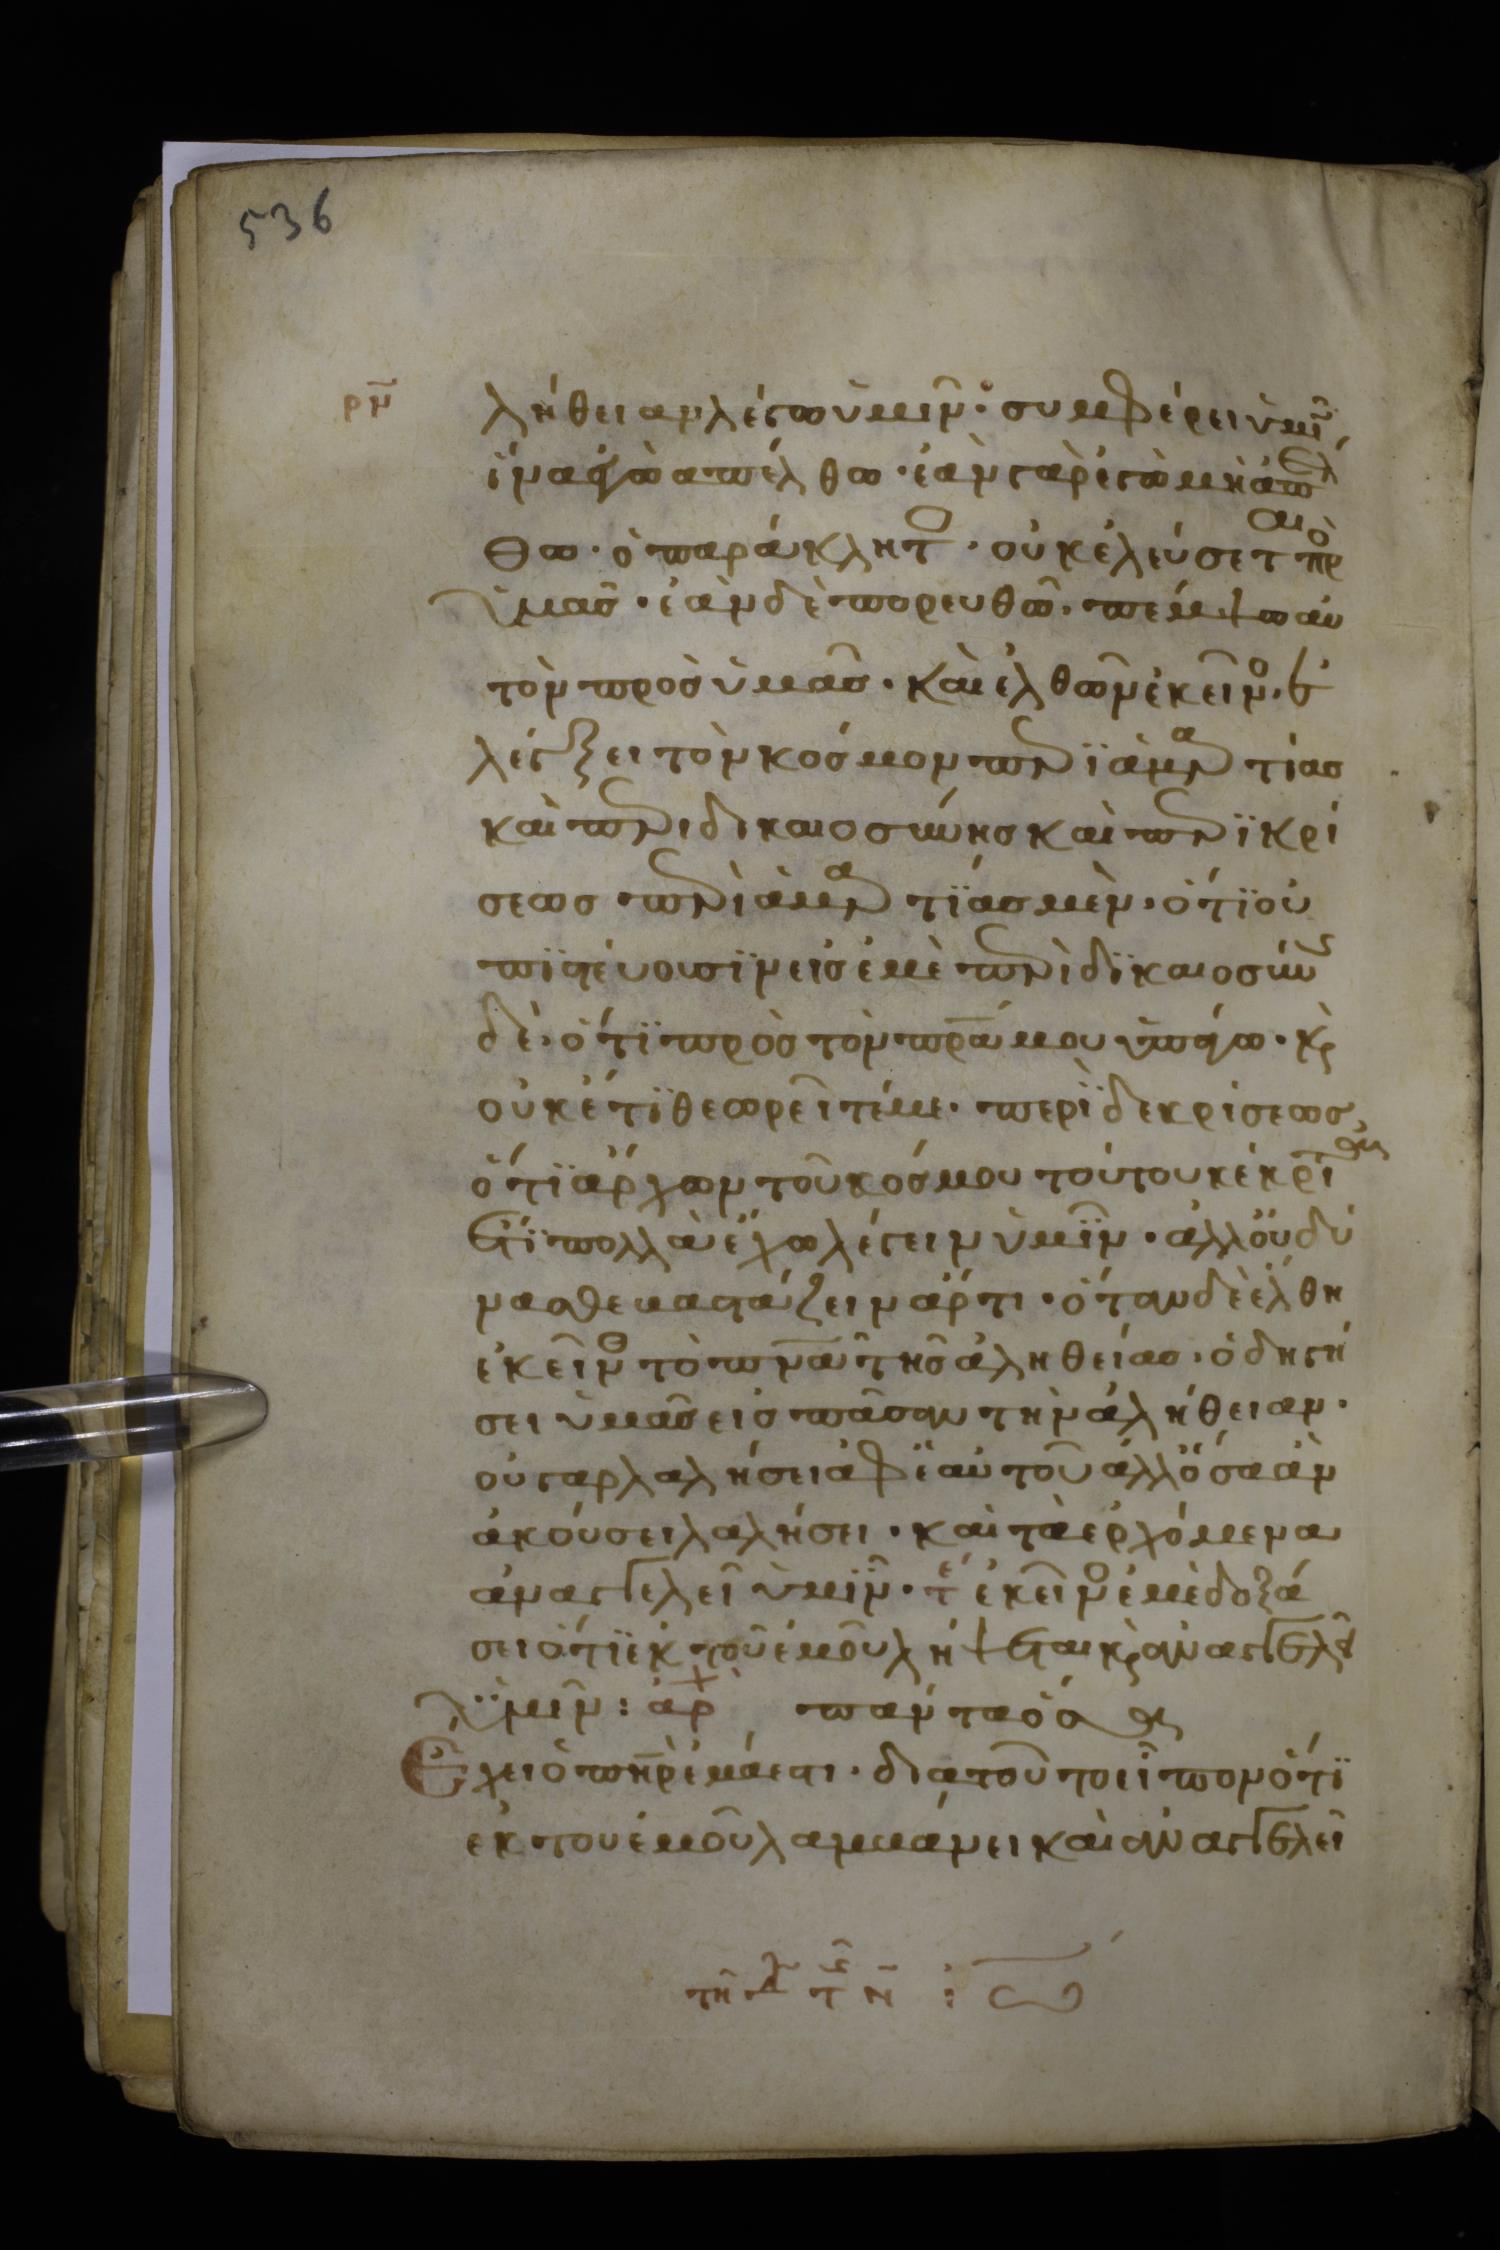 536
ρν
λήθειαν λέγω ὑμῖν· συμφέρει ὑμῖ
ἵνα ἐγὼ ἀπέλθω· ἐὰν γὰρ ἐγὼ μὴ ἀπέλ
θω· ὁ παράκλητο· οὐκ ἐλεύσεται πρὸ
ὑμᾶς· ἐὰν δὲ πορευθῶ· πέμψω αὐ
τὸν πρὸς ὑμᾶς· καὶ ἐλθῶν ἐκεῖνο· ἐ
λέγξει τὸν κόσμον περϊ ἁμαρτίας
καὶ περι δικαιοσύνης καὶ περϊ κρί
σεως περὶ ἁμαρτϊας μὲν· ὅτϊ οὐ
πϊστεύουσϊν εἰς ἐμὲ περὶ δϊκαιοσύν
δὲ· ὅτϊ πρὸς τὸν πρα μου ὑπάγω· κ
οὐκέτϊ θεωρεῖτέ με· περϊ δε κρίσεως
ὅτϊ ἄρχων τοῦ κόσμου τούτου κέκριται
ἔτϊ πολλὰ ἔχω λέγειν ὑμῖν· ἀλλ οὐ δύ
νασθε βαστάζειν ἄρτι· ὅταν δὲ ἔλθη
ἐκεῖνο τὸ πνα τῆς ἀληθείας· ὁδηγή
σει ὑμᾶς εἰς πᾶσαν τὴν ἀλήθειαν·
οὐ γαρ λαλήσει ἀφ ἑαυτοῦ ἀλλ ὅσα ἀν
ἀκούσει λαλήσει· καὶ τὰ ἐρχόμενα
ἀναγγελεῖ ὑμῖν· τε ἐκεῖνο ἐμὲ δοξά
σει ὅτϊ ἐκ τοῦ ἐμοῦ λήψεται κ ἀναγγελεῖ
ὑμῖν: ἀρχ πάντα ὅσα
Ἔχει ὁ πηρ ἐμά ἐστι· διατοῦτο εἶπον ὅτϊ
ἐκ του ἐμοῦ λαμβάνει καὶ ἀναγγελεῖ